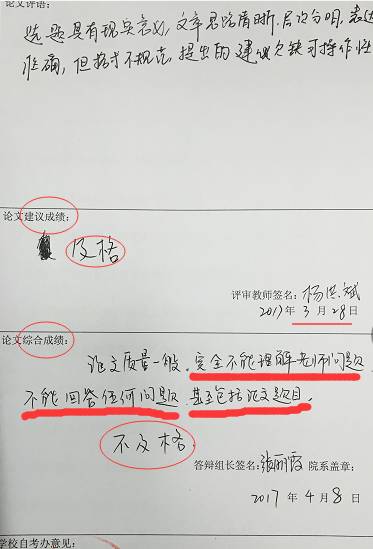 论文评语：
选题具有现实意义，文章思路清晰，层次分明，表达
准确，但格式不规范，提出的建议欠缺可操作性
论文建议成绩：
及格
评审教师签名：杨洪斌
2017年 3 月 28日
论文综合成绩：
论文质量一般，完全不能理解老师问题
不能回答任何问题，甚至包括论文题目。
不及格
答辩组长签名：张丽霞 院系盖章：
2017 年 4 月 8 日
学校自考办意见：